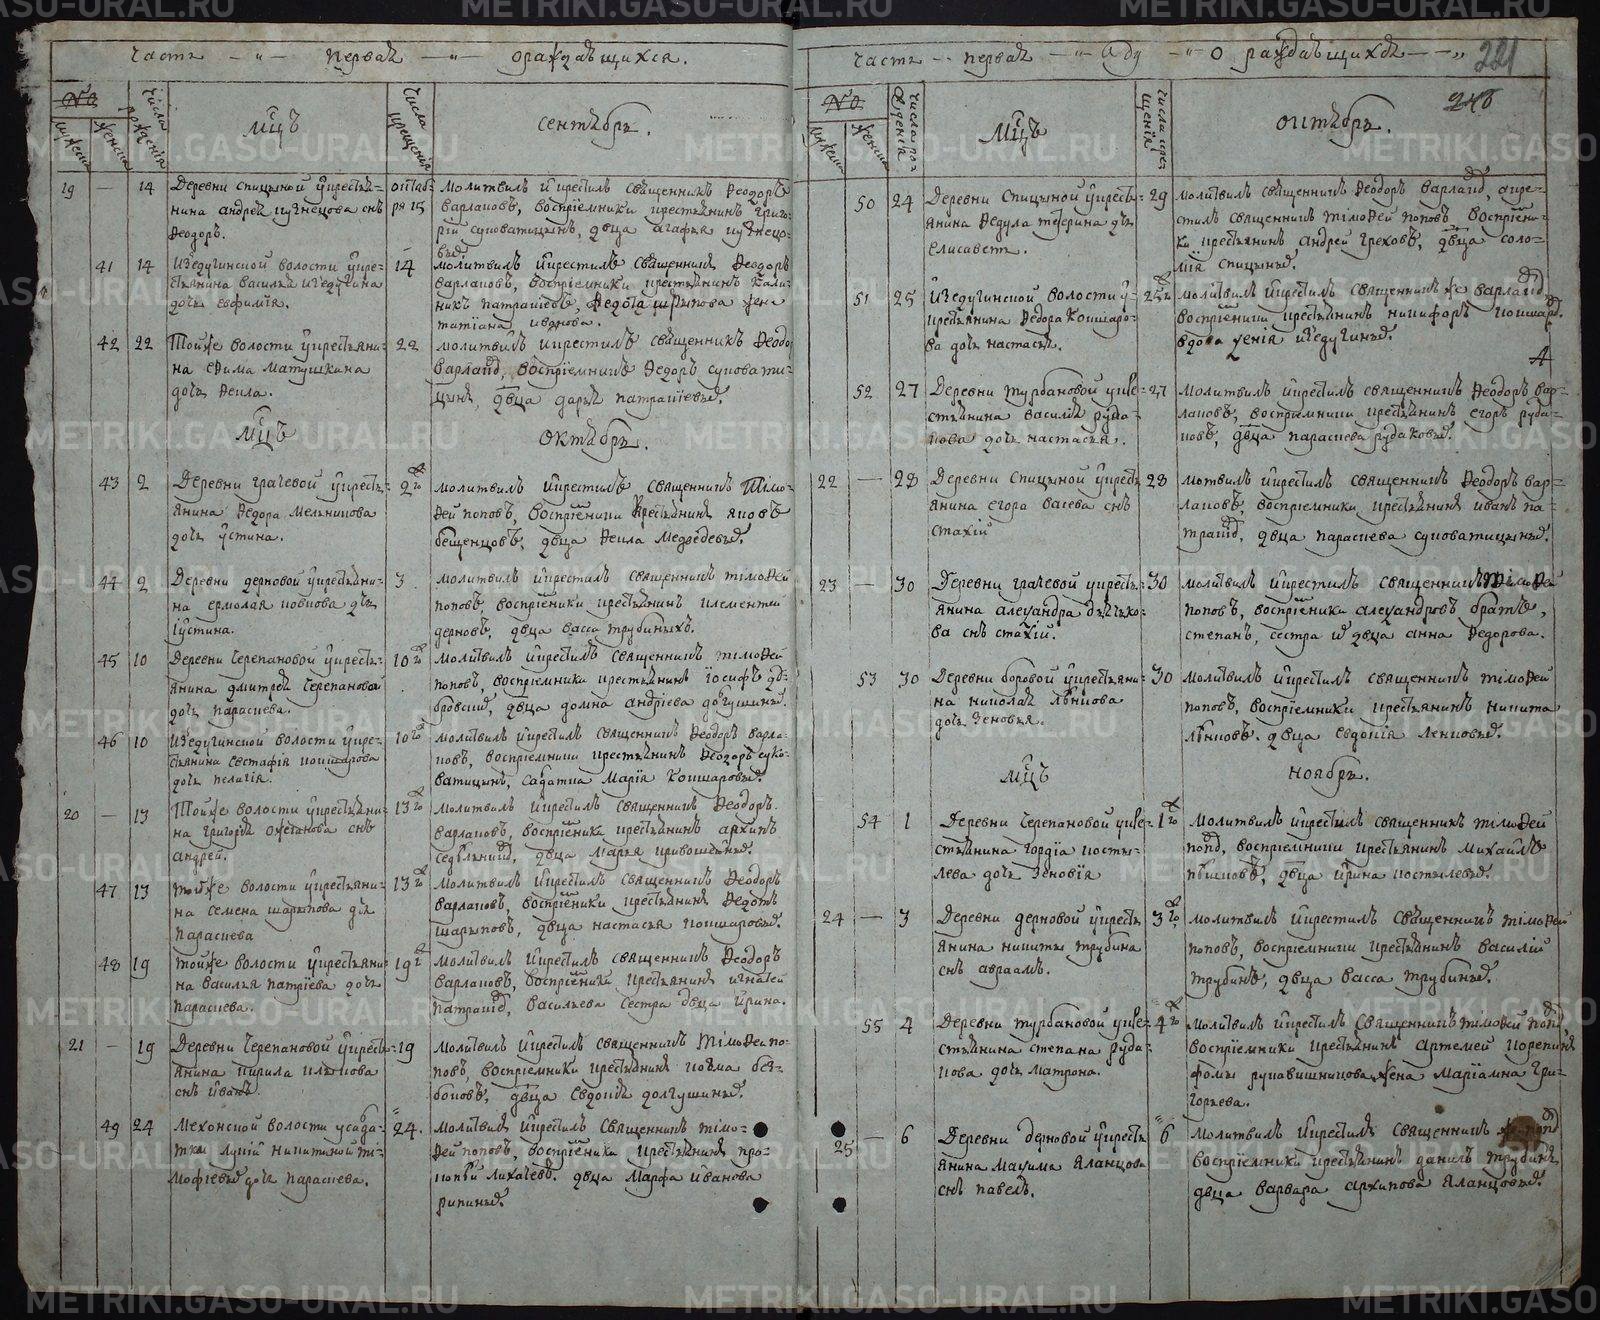 Часть первая о раждающихся.
№
мужеска
женска
числа рождения
Мцъ
числа крещения
Сентябрь.
19 — 14 Деревни Спицыной крестья-
нина Андрея Кузнецова снъ
Феодоръ.
октяб-
ря 15
молитвилъ и крестилъ священникъ Феодоръ
Варлаковъ, восприемники крестьянинъ Григо-
рій Суковатицынъ, двца Агафья Кузнецо-
41 14 Изедугинской волости кре-
стьянина Василья Изедугина
дочь Евфимія.
14 молитвилъ и крестилъ священникъ Феодоръ
Варлаковъ, восприемники крестьянинъ Кали-
никъ Патракѣевъ, Федота Шарыпова жена
Татіана Иванова.
42 22 Той же волости крестьяни-
на Ефима Матушкина
дочь Фекла.
22 молитвилъ и крестилъ священникъ Феодо
Варлаков, восприемникъ Федоръ Суковати-
цынъ, двца Дарья Патракіевых.
Мцъ Октябрь.
43 2 Деревни Грачевой крестъ-
янина Федора Мельникова
дочь Устина.
2 молитвилъ и крестилъ священникъ Тимо-
фей Поповъ, восприемники крестьянинъ Яковъ
двца Фекла Медведевых.
44 2 Деревни Дерновой крестьяни-
на Ермолая Новкова дчь
Іустина.
3 молитвилъ и крестилъ священникъ Тимофей
Поповъ восприемники крестьянинъ Клементей
Дерновъ, двца Васса Трубиныхъ.
45 10 Деревни Черепановой крестъ-
янина Дмитрея Черепанова
дочь Парасцева.
10 молитвилъ и крестилъ священникъ Тимофей
Поповъ, восприемники крестьянинъ Іосифъ Ду-
бровский, двца Домна Андріева Долгушиных.
46 10 Изедугинской волости кре-
стьянина Евстафія Кошкарова
дочь Пелагія.
10 молитвилъ и крестилъ священникъ Феодоръ Варла-
ковъ, восприемники крестьянинъ Феодоръ Суко-
ватицынъ, салдатка Марія Кошкаровых.
20 — 13 Той же волости крестьяни-
на Григорья Ожеганова снъ
Андрей.
13 молитвилъ и крестилъ священникъ Феодоръ
Варлаковъ, восприемники крестьянинъ Архипъ
двца Марья Кривошеиных.
47 13 той же волости крестьяни-
на Семена Шарыпова дчь
Парасцева
13 молитвилъ и крестилъ священникъ Феодоръ
Варлаковъ, восприемники крестьянинъ Федотъ
Шарыповъ, двца Настасья Кошкаровых.
48 19 той же волости крестьяни-
на Василья Патркіева дочь
Парасцева.
19 молитвилъ и крестилъ священникъ Феодоръ
Варлаковъ, восприемники крестьянинъ Игнатей
Патракіев, Васильева сестра двца Ирина.
21 — 19 Деревни Черепановой крестъ-
янина Кирила Илькова
снъ Иванъ.
19 молитвилъ и крестилъ священникъ Тимофей По-
повъ, восприемники крестьянинъ Козма
двца Евдокія Долгушиных.
49 24 Мехонской волости у салда-
тки Лукии Никитиной Ти-
мофіевых дочь Парасцева.
24. молитвилъ и крестилъ священникъ Тимо-
фей Поповъ, восприемники крестьянинъ Про-
копей Лихачевъ. двца Марфа Иванова
Рипиных.
Часть первая о раждающихся
221
246
№
мужеска
женска
числа рождения
Мцъ
числа крещения
Октябрь.
50 24 Деревни Спицыной кресть-
янина Федула Тетерина дчь
Елисавет.
29 молитвилъ священникъ Феодоръ Варлаков, а кре-
стилъ священникъ Тимофей Поповъ восприемни-
ки крестьянинъ Андрей Греховъ, двца Соло-
мія Спицыных.
51 25 Изедугинской волости к-
рестьянина Федора Кошкаро-
ва дочь Настасья.
25 молитвилъ и крестилъ священникъ же Варлаков
восприемники крестьянинъ Никифоръ Кошкаров.
вдова Ксенія Изедугиных.
52 27 Деревни Турбановой кре-
стьянина Василья Руда-
кова дочь Настасья.
27 молитвилъ и крестилъ священникъ Феодоръ Вар-
лаковъ, восприемники крестьянинъ Егоръ Руда-
ковъ, двца Парасцева Рудаковых.
22 — 28 Деревни Спицыной кресть
янина Егора Васева снъ
Стахій
28 мотвилъ и крестилъ священникъ Феодоръ Вар-
лаковъ, восприемники крестьянинъ Иванъ Па-
тракіев, двца Парасцева Суковатицыных.
23 — 30 Деревни Грачевой крестъ-
янина Алеѯандра Дьячко-
ва снъ Стахій.
30 молитвилъ и крестилъ священникъ Тимофей
Поповъ, восприемники Алеѯандровъ братъ,
Степанъ, сестра и двца Анна Федорова.
53 30 Деревни Боровой крестьяни-
на Николая Лѣнкова
дочь Зеновья.
30 молитвилъ и крестилъ священникъ Тимофей
Поповъ, восприемники крестьянинъ Никита
Лѣнковъ. двца Евдокія Ленковых.
Мцъ Ноябрь.
54 1 Деревни Черепановой кре-
стьянина Гордія Косты-
лева дочь Зеновія
1 молитвилъ и крестилъ священникъ Тимофей
Попов, восприемники крестьянинъ Михайлъ
двца Ирина Костылевых.
24 — 3 Деревни Дерновой кресть
янина Никиты Трубина
снъ Авраамъ.
3 молитвилъ и крестилъ священникъ Тимофей
Поповъ, восприемники крестьянинъ Василій
Трубинъ, двца Васса Трубиных.
55 4 Деревни Турбановой кре-
стьянина Степана Руда-
кова дочь Матрона.
4 молитвилъ и крестилъ священникъ Тимофей Попов,
восприемники крестьянинъ Артемей Корепинъ
Фомы Рукавишникова жена Маріамна Гри-
горьева.
25 — 6 Деревни Дерновой кресть
янина Маѯима Яланцова
снъ Павелъ.
6 молитвилъ и крестилъ священникъ же Попов
восприемники крестьянинъ Данилъ Трубинъ
двца Варвара Архипова Яланцовых.